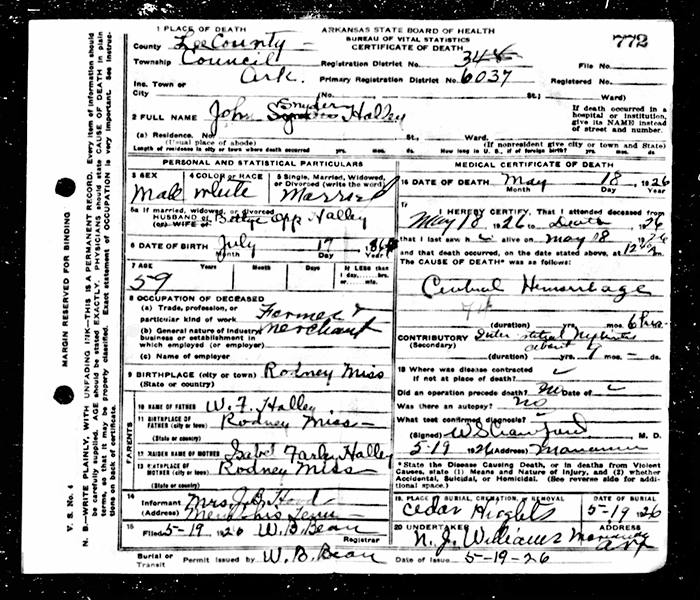 1 PLACE OF DEATH
ARKANSAS STATE BOARD OF HEALTH
BUREAU OF VITAL STATISTICS
CERTIFICATE OF DEATH
772
County Lee County
Township Council
Registration District No. 344
File No.
Inc. Town or Ark.
Primary Registration District No. 6037
Registered No.
City (No. St.; Ward)
2 FULL NAME John Snyder Halley
If death occurred in a hospital or institution, give its NAME instead of street and number.
(a) Residence. No. St. Ward.
(Usual place of abode) (If nonresident give city or town and State)
Length of residence in city or town where death occurred yrs. mos. ds. How long in U. S., if of foreign birth? yrs. mos. ds.
PERSONAL AND STATISTICAL PARTICULARS
3 SEX Male
4 COLOR or RACE white
5 Single, Married, Widowed, or Divorced (write the word) Married
5a If married, widowed, or divorced
HUSBAND of
(or) WIFE of Opp Halley
6 DATE OF BIRTH July 17
Month Day Year
7 AGE 59
Years Months Days
If LESS than
1 day, hrs.
or min.
8 OCCUPATION OF DECEASED
(a) Trade, profession, or
particular kind of work Farmer &
(b) General nature of industry
business or establishment in
which employed (or employer) Merchant
(c) Name of employer
9 BIRTHPLACE (city or town) Rodney Miss
(State or country)
PARENTS
10 NAME OF FATHER W. F. Halley
11 BIRTHPLACE OF
FATHER (city or town) Rodney Miss
(State or country)
12 MAIDEN NAME OF MOTHER Farley Halley
13 BIRTHPLACE OF
MOTHER (city or town) Rodney Miss
(State or country)
14 Informant Mrs. J. B.
(Address) Memphis Tenn
15
Filed 5-19 1926 W. B. Bean
Burial or Transit Permit issued by W. B. Bean
MEDICAL CERTIFICATE OF DEATH
16 DATE OF DEATH May 18 1926
Month Day Year
17
I HEREBY CERTIFY, That I attended deceased from
May 18 1926 to Death 1926
that I last saw h alive on May 18 1926
and that death occurred, on the date stated above, at 12 m.
The CAUSE OF DEATH* was as follows:
Cerebral Hemorrhage
74
(duration) yrs. mos. 6 hrs.
CONTRIBUTORY Interstitial Nephritis
(Secondary) about
(duration) yrs. mos. ds.
18 Where was disease contracted
if not at place of death?
Did an operation precede death? no Date of
Was there an autopsy? no
What test confirmed diagnosis?
(Signed) M. D.
5-19 1926 (Address) Marianna
* State the Disease Causing Death, or in deaths from Violent Causes, state (1) Means and Nature of Injury, and (2) whether Accidental, Suicidal, or Homicidal. (See reverse side for additional space.)
19. PLACE OF BURIAL, CREMATION, OR REMOVAL Cedar Heights
DATE OF BURIAL 5-19 1926
20 UNDERTAKER N. J. Williams
ADDRESS Marianna Ark
Date of Issue 5-19-26
MARGIN RESERVED FOR BINDING
V. S. No. 4
N. B.—WRITE PLAINLY, WITH UNFADING INK—THIS IS A PERMANENT RECORD. Every item of information should be carefully supplied. AGE should be stated EXACTLY. PHYSICIANS should state CAUSE OF DEATH in plain terms, so that it may be properly classified. Exact statement of OCCUPATION is very important. See instructions on back of certificate.